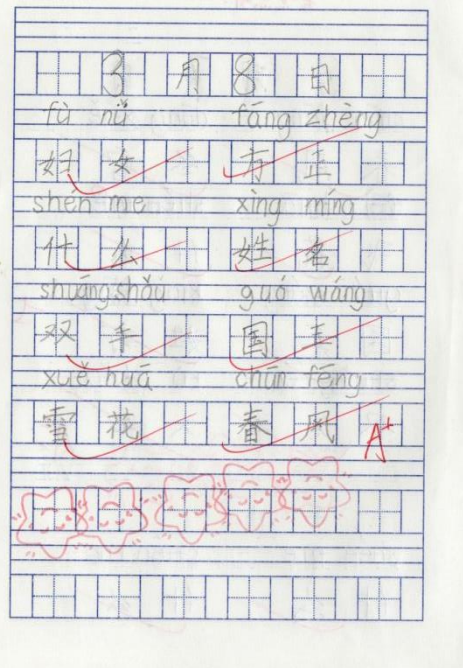 3月8日
fù nǚ fāng zhèng
妇女 方正
shén me xìng míng
什么 姓名
shuāng shǒu guó wáng
双手 国王
xuě huā chūn fēng
雪花 春风
A+